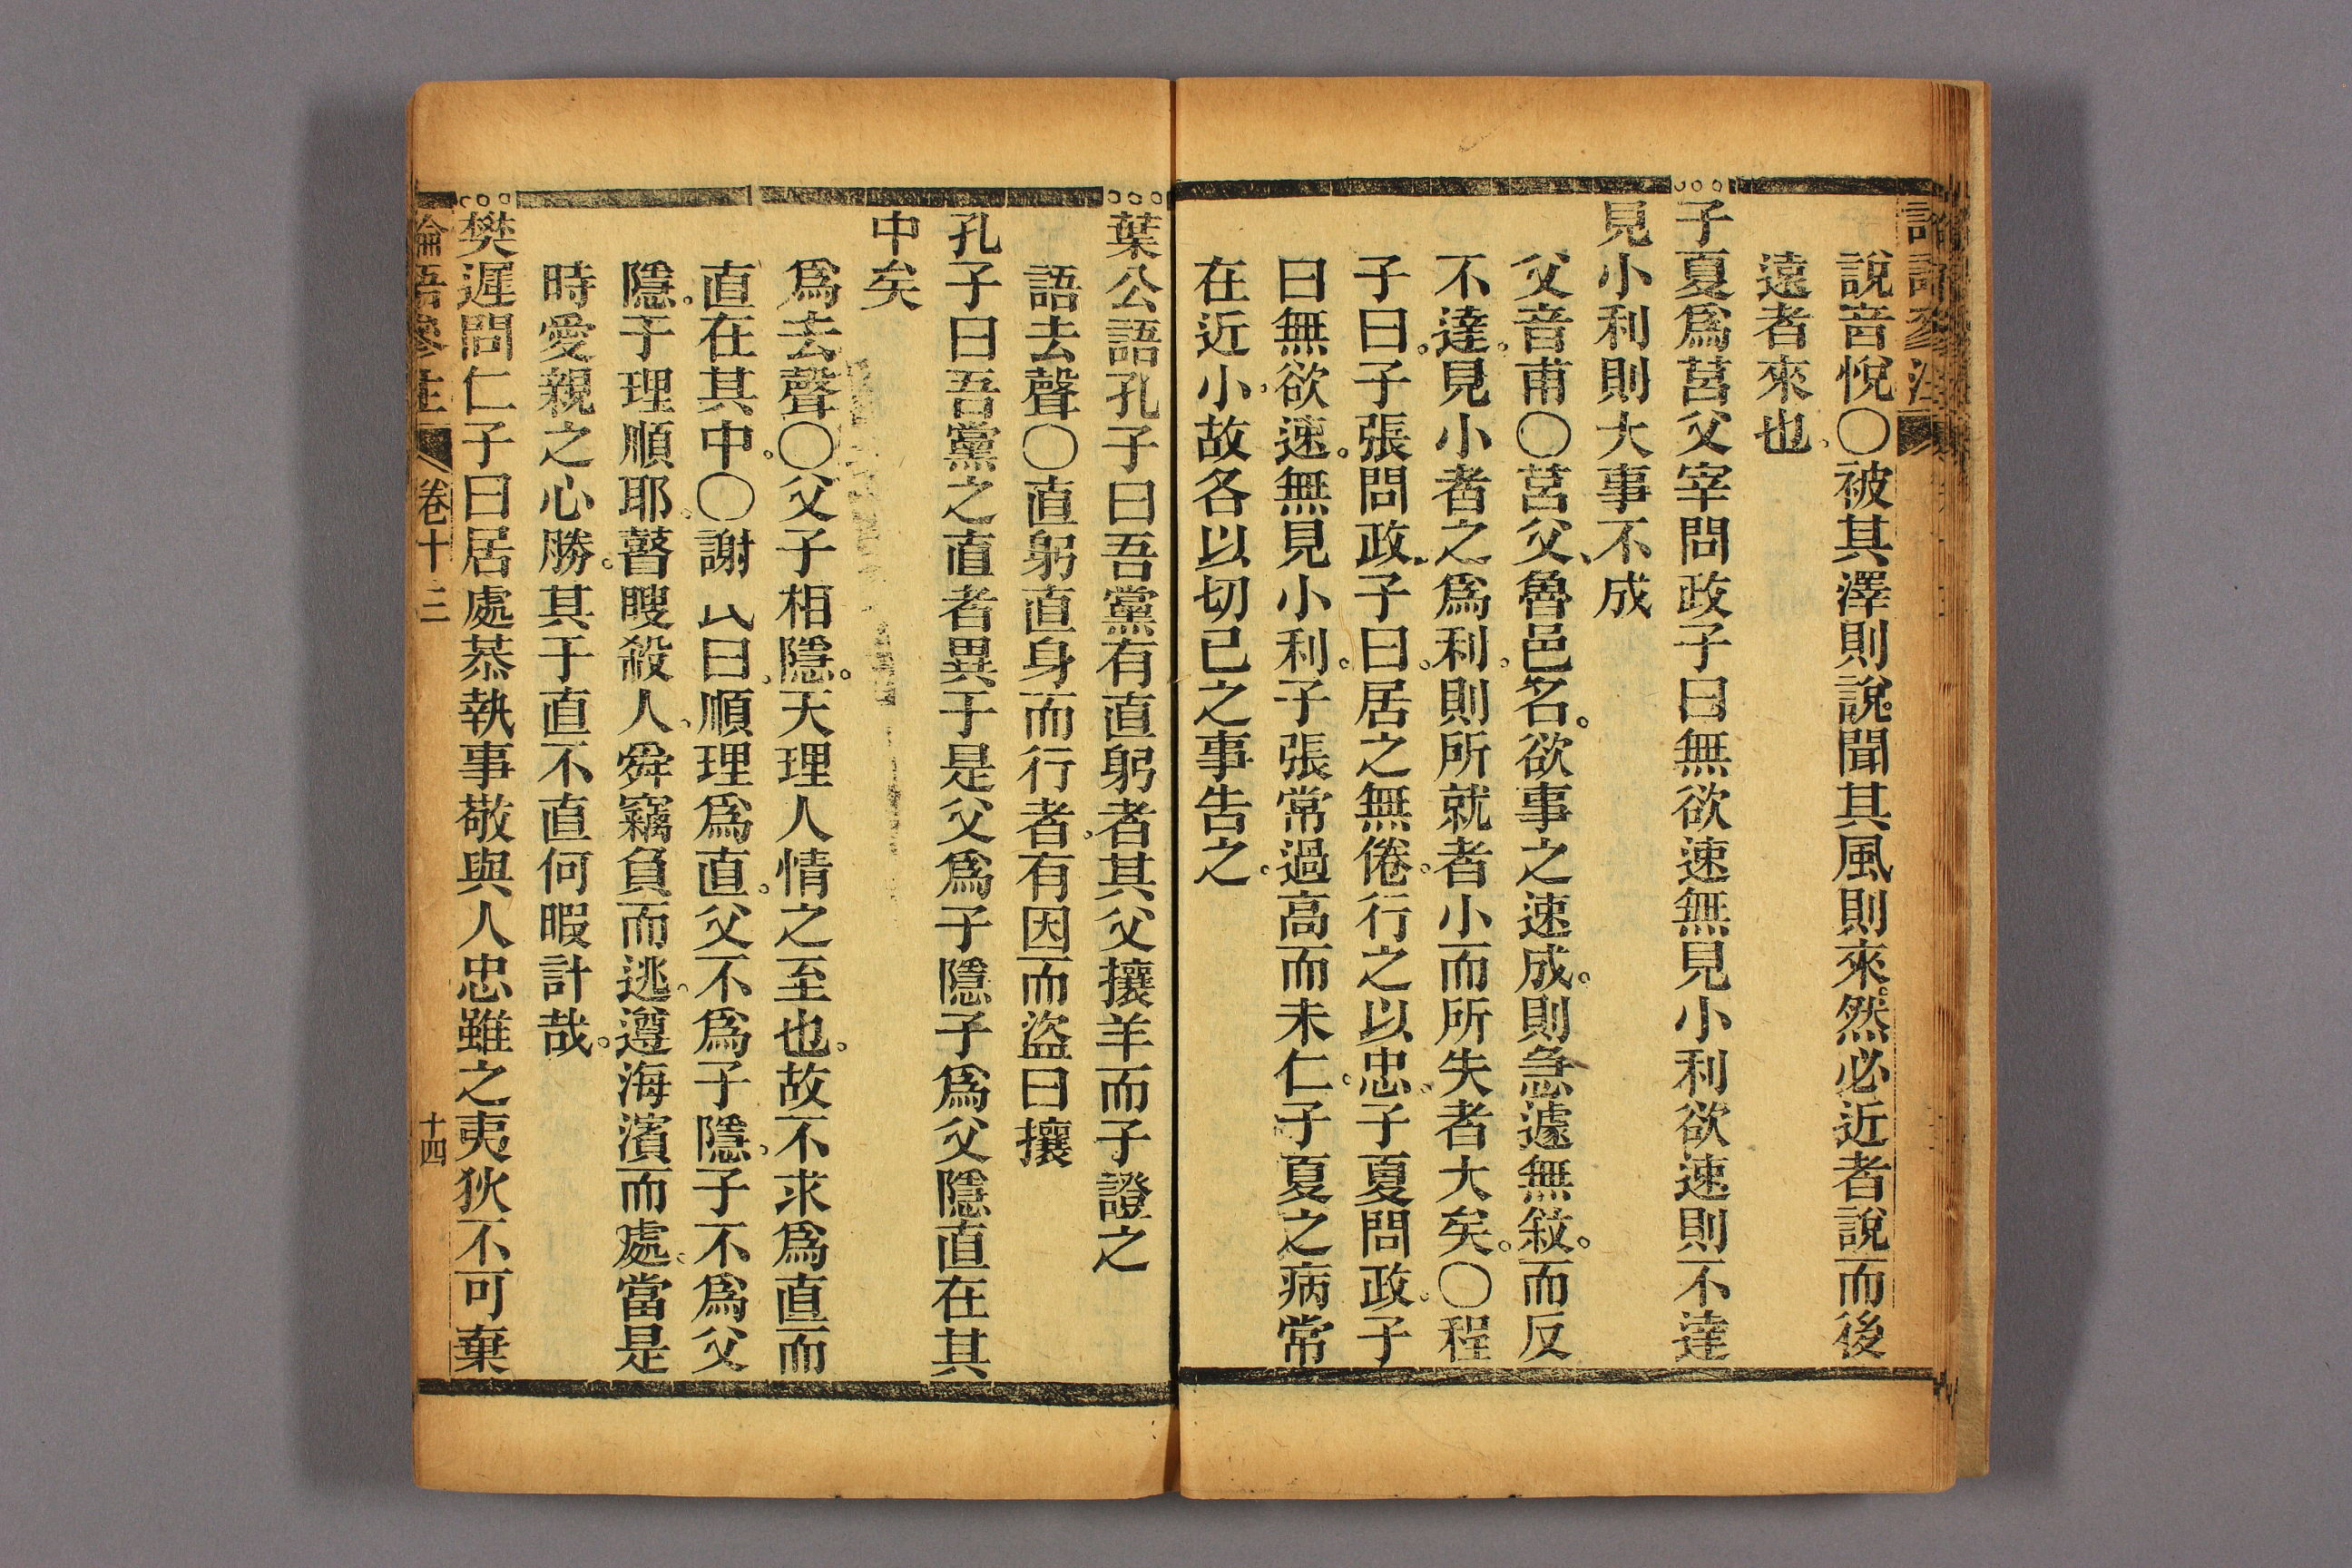 說音悅〇被其澤則說。聞其風則來。然必近者說而後
遠者來也。
子夏爲莒父宰問政子曰無欲速無見小利欲速則不達
見小利則大事不成
父音甫〇莒父、魯邑名。欲事之速成。則急遽無敘。而反
不達。見小者之爲利。則所就者小而所失者大矣。〇程
子曰。子張問政。子曰。居之無倦。行之以忠。子夏問政。子
曰無欲速。無見小利。子張常過高而未仁。子夏之病常
在近小。故各以切己之事告之。
葉公語孔子曰吾黨有直躬者其父攘羊而子證之
語去聲〇直躬直身而行者。有因而盜曰攘
孔子曰吾黨之直者異于是父爲子隱子爲父隱直在其
中矣
爲去聲〇父子相隱。天理人情之至也。故不求爲直而
直在其中。〇謝氏曰。順理爲直。父不爲子隱。子不爲父
隱。于理順耶。瞽瞍殺人。舜竊負而逃。遵海濱而處。當是
時愛親之心勝。其于直不直何暇計哉。
樊遲問仁子曰居處恭執事敬與人忠雖之夷狄不可棄
論語參注 卷十三 十四